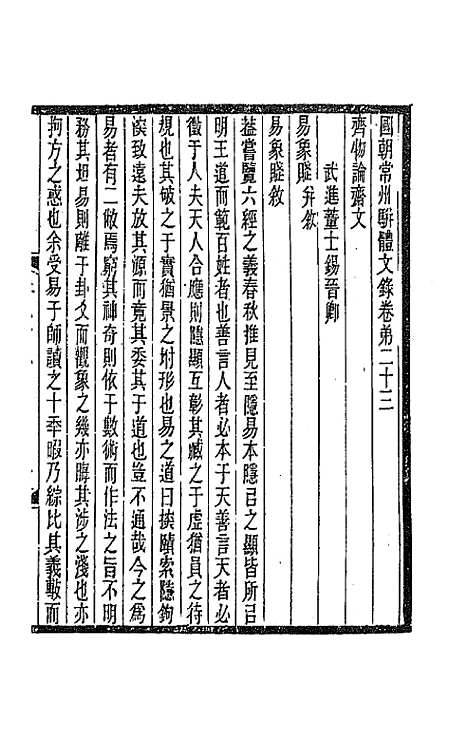 國朝常州駢體文錄卷弟二十三
齊物論齋文
武進董士錫晉卿
易象賦并敘
易象賦敘
葢嘗覽六經之義春秋推見至隱易本隱㠯之顯皆所㠯
明王道而範百姓者也善言人者必本于天善言天者必
徵于人夫天人合應則隱顯互彰其臧之于虛猶員之待
規也其破之于實猶景之坿形也易之道曰探賾索隱鉤
深致遠夫放其源而竟其委其于道也豈不通哉今之為
易者有二敝焉窮其神奇則依于數術而作法之旨不明
務其坦易則離于卦爻而觀象之幾亦晦其涉之淺也亦
拘方之惑也余受易于師讀之十年暇乃綜比其義數而